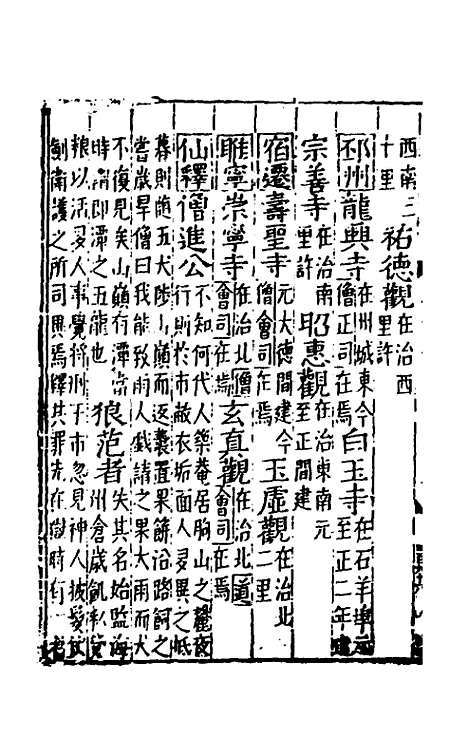 西南三
十里
祐德觀
在治西
里許
邳州
龍興寺
在州城東今
僧正司在焉
白玉寺
在石羊埠元
至正二年建
宗善寺
在治南
里許
昭惠觀
在治東南元
至正間建
宿遷
壽聖寺
元大德間建今
僧會司在焉
玉虛觀
在治北
二里
睢寧
崇寧寺
在治北僧
會司在焉
玄真觀
在治北道
會司在焉
仙釋
僧進公
不知何代人築菴居朐山之麓夜
行則於市敝衣垢面人異之
暮則隨五犬陟山巔而返囊置果餅沿路飼之
嘗歲旱僧曰我能致雨人戯請之果大雨而犬
不復見矣山巔有潭當
時謂即潭之五龍也
狼范者
失其名始監海
州倉歲飢私
粮以活多人事覺將刑于市忽見神人披髮仗
劍衛護之所司異焉釋其罪先在獄時有一老